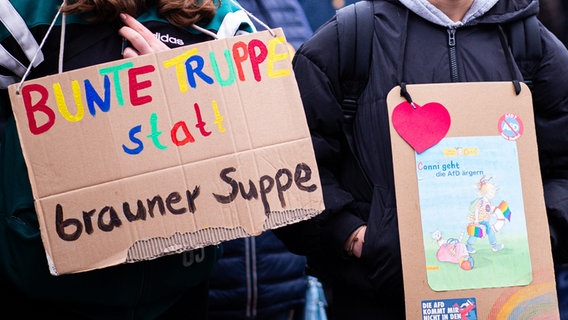 BUNTE TRuPPE
statt
brauner Suppe
adidas
Conni geht
die AfD ärgern
DIE AFD
KOMMT MIR
NICHT IN DEN